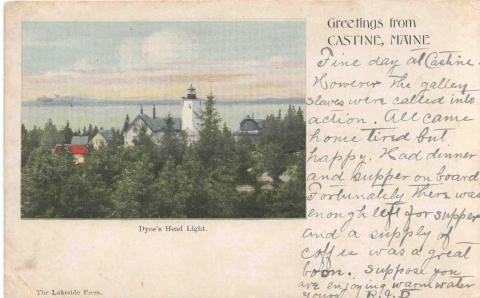 Greetings from
CASTINE, MAINE
Fine day at Castine.
However the galley
slaves were called into
action. All came
home tired but
happy. Had dinner
and supper on board
Fortunately there was
enough left for supper
and a supply of
coffee was a great
boon. Suppose you
are enjoying warm water
yours
Dyce's Head Light.
The Lakeside Press.